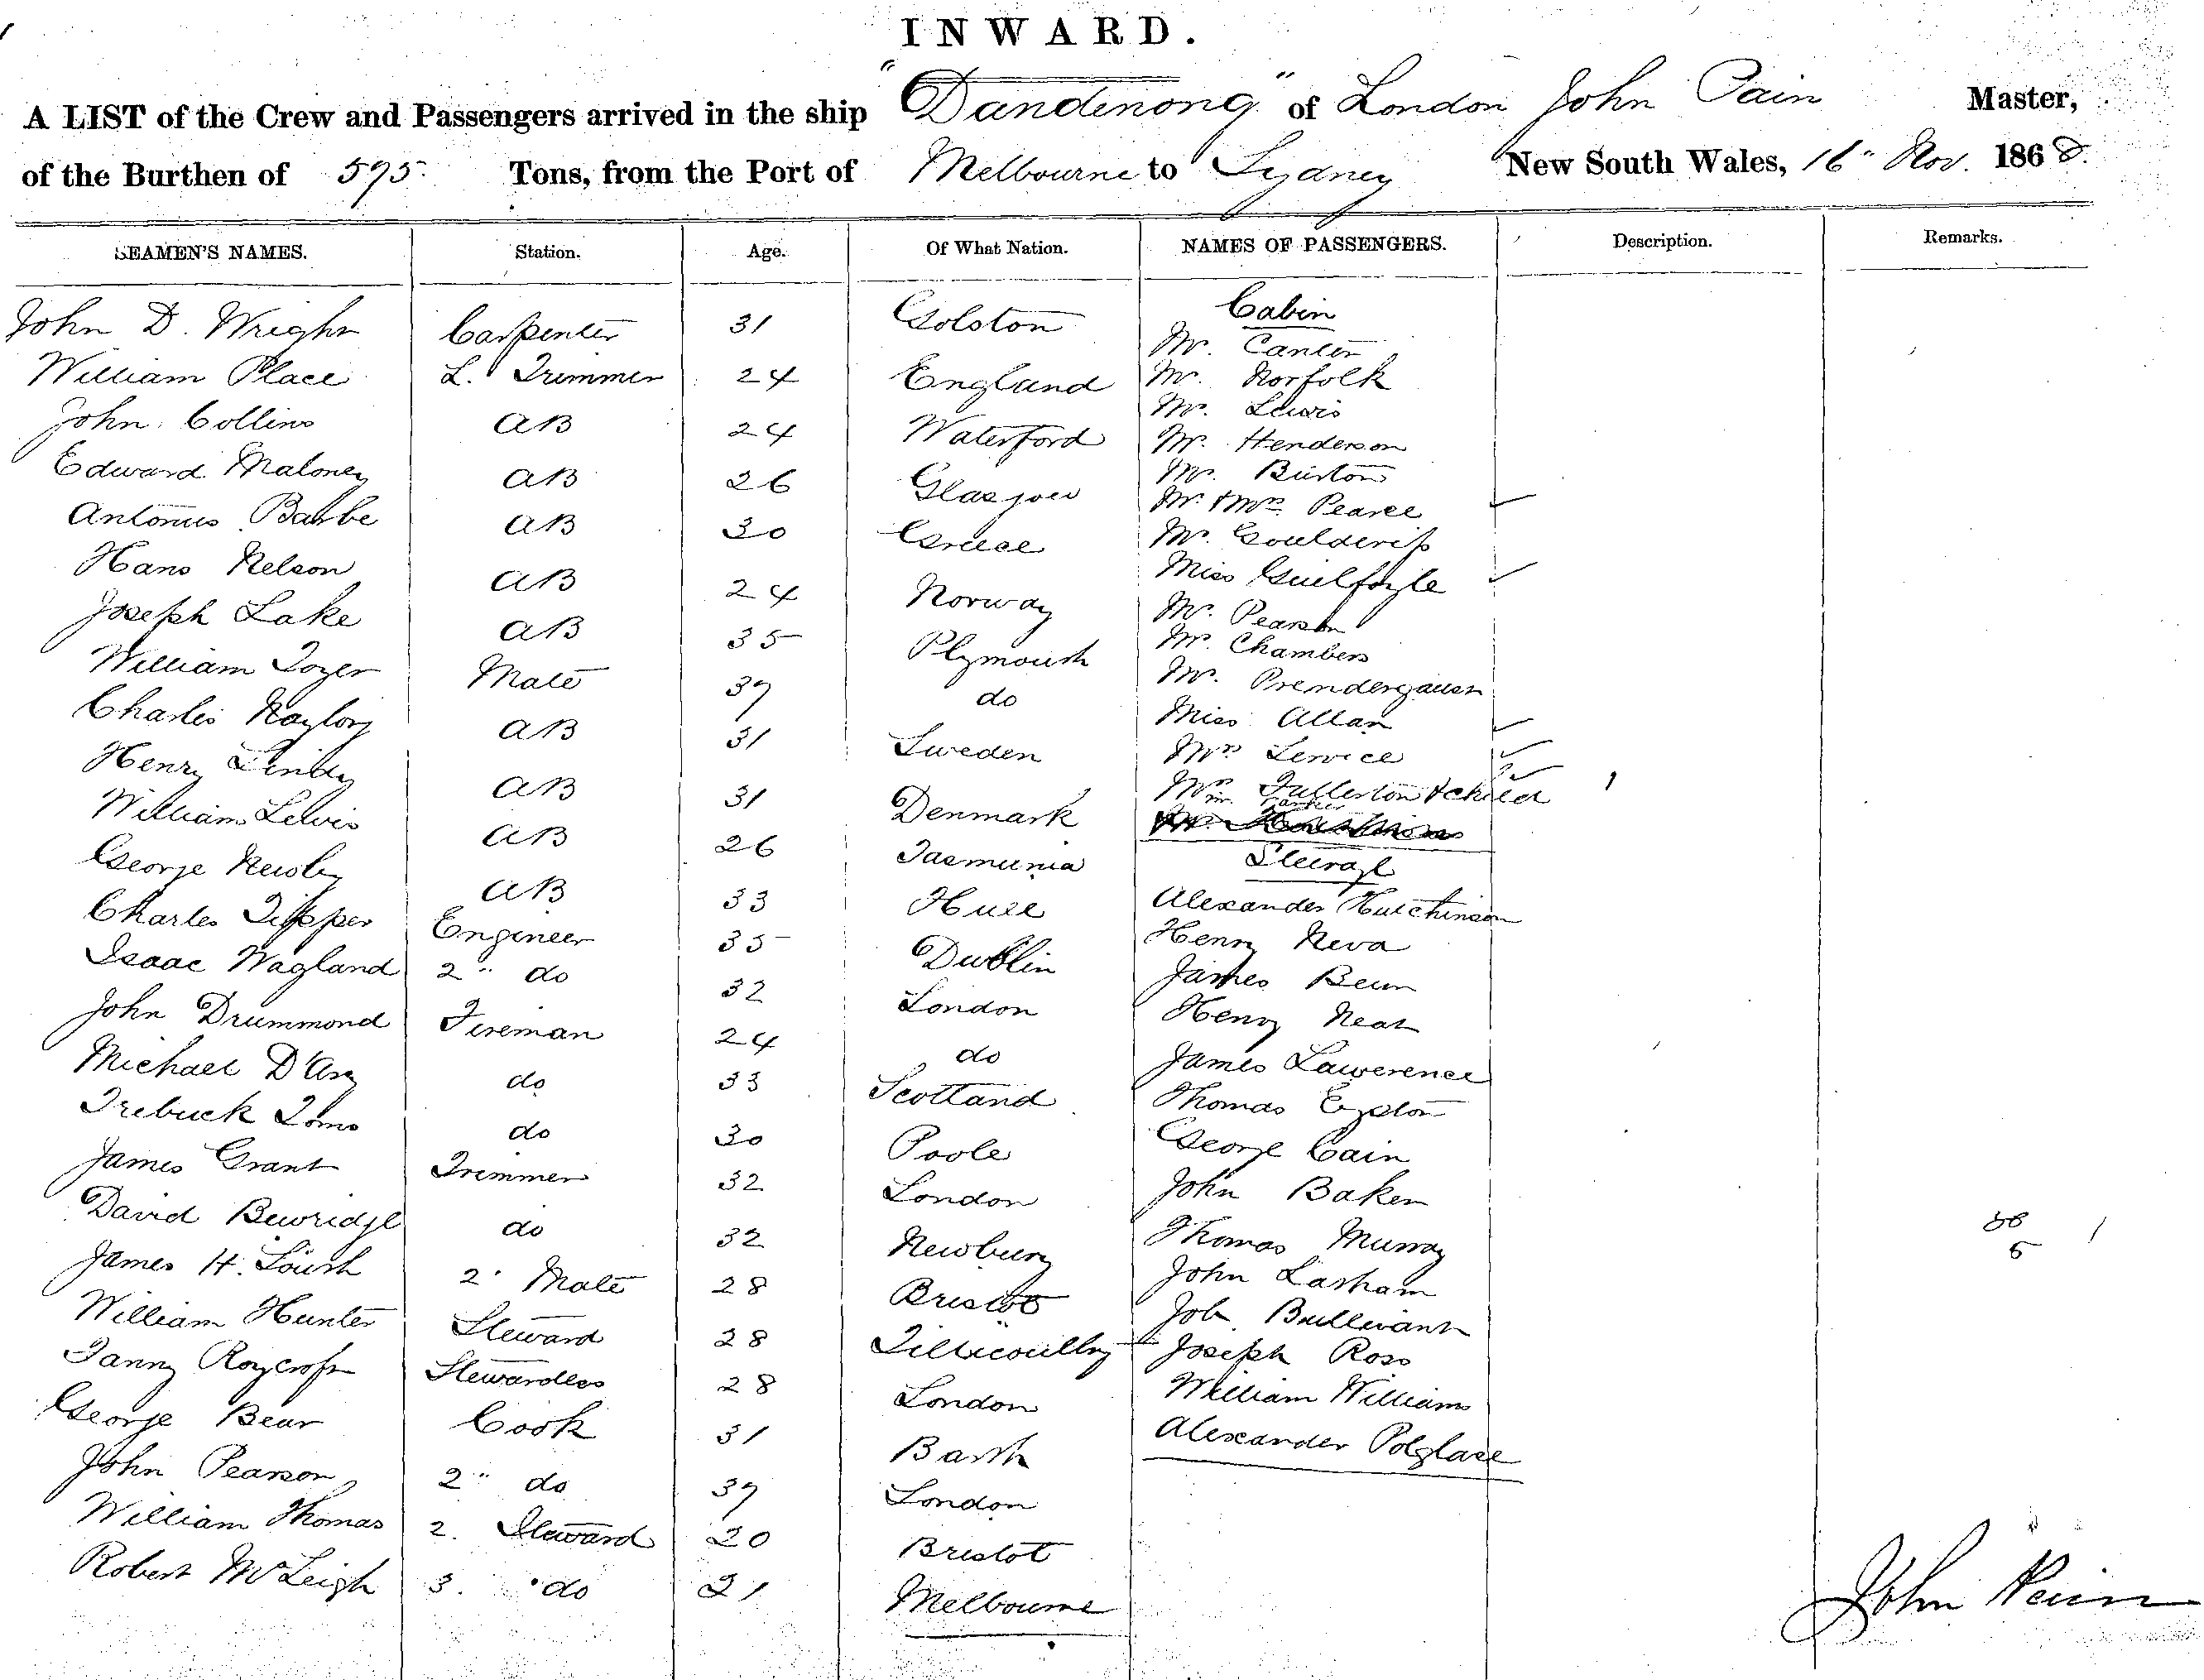 INWARD.
A LIST of the Crew and Passengers arrived in the ship "Dandenong" of London John Pain Master,
of the Burthen of 595 Tons, from the Port of Melbourne to Sydney New South Wales, 16" Nov. 1868.
SEAMEN'S NAMES. Station. Age. Of What Nation. NAMES OF PASSENGERS. Description. Remarks.
Cabin
John D. Wright Carpenter 31 Golston Mr. Canter
William Place L. Trimmer 24 England Mr. Norfolk
Mr. Lewis
John Collins AB 24 Waterford Mr. Henderson
Mr. Burton
Edward Maloney AB 26 Glasgow Mr. & Mrs. Pearce
Antonius Barbe AB 30 Greece Mr.
Hans Nelson AB 24 Norway Miss Guilfoyle
Mr. Pearson
Joseph Lake AB 35 Plymouth Mr. Chambers
William Tozer Mate 37 do Mr. Prendergaust
Miss Allan
Charles Naylory AB 31 Sweden Mrs
Henry AB 31 Denmark Mrs Fullerton & child
Mr. Parker
William Lewis AB 26 Tasmania Steerage
George Newby AB 33 Hull Alexander Hutchinson
Charles Tipper Engineer 35 Dublin Henry Neva
Isaac Wagland 2" do 32 London James
John Drummond Fireman 24 do Henry Neat
Michael D'Arcy do 33 Scottland James Lawerence
Trebuck Toms do 30 Poole Thomas
James Grant Trimmer 32 London George Cain
John Baker
David Bewridge do 32 Newbury Thomas Murray
56
5
James H. South 2" Mate 28 Bristol John Lasham
William Hunter Steward 28 Tillicoultry Job Bullivant
Joseph Ross
Fanny Roycroft Stewardess 28 London William Williams
George Bear Cook 31 Barth Alexander Polglase
John Pearson 2" do 37 London
William Thomas 2. Steward 20 Bristol
Robert McLeigh 3. do 21 Melbourne
John Pain